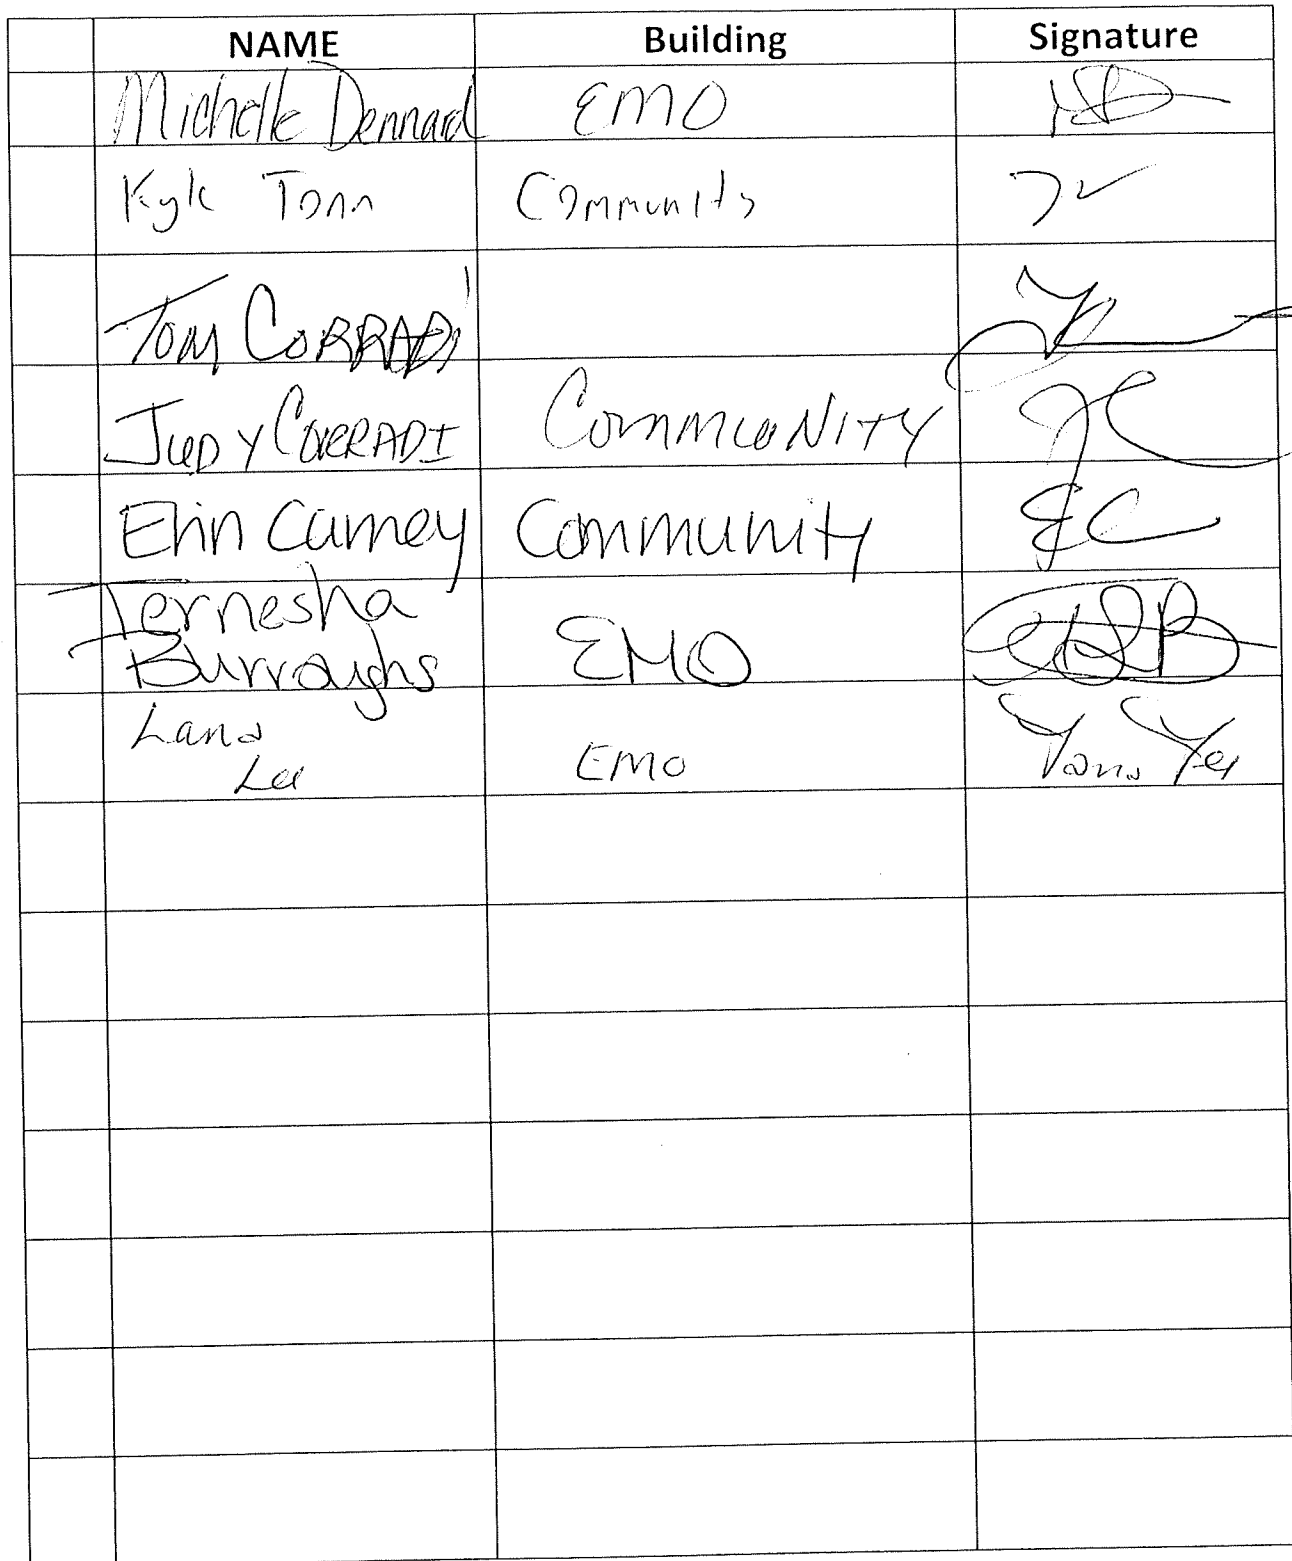 NAME Building Signature
Michelle Dennard EMO MD
Kyle Tonn Community
Tom CORRADI
JUDY CORRADI COMMUNITY JC
Erin Carney Community EC
Ternesha
Burroughs EMO
Lana
Lee EMO Lana Lee